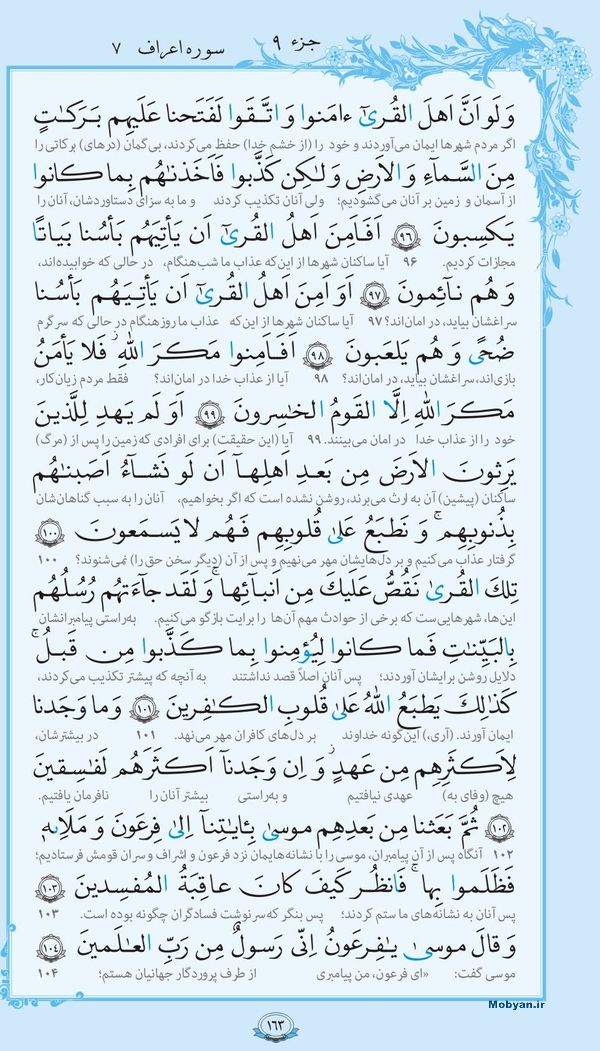 جزء ۹
سوره اعراف ۷
وَ لَو اَنَّ اَهلَ القُریٰٓ ءامَنوا وَ اتَّقَوا لَفَتَحنا عَلَیهِم بَرَکٰتٍ
اگر مردم شهرها ایمان می‌آوردند و خود را (از خشم خدا) حفظ می‌کردند، بی‌گمان (درهای) برکاتی را
مِنَ السَّمآءِ وَ الاَرضِ وَ لٰکِن کَذَّبوا فَاَخَذنٰهُم بِما کانوا
از آسمان و زمین بر آنان می‌گشودیم؛ ولی آنان تکذیب کردند و ما به سزای دستاوردشان، آنان را
یَکسِبونَ ﴿۹۶﴾ اَفَاَمِنَ اَهلُ القُریٰٓ اَن یَأتِیَهُم بَأسُنا بَیاتًا
مجازات کردیم. ۹۶ آیا ساکنان شهرها از این‌که عذاب ما شب‌هنگام، در حالی که خوابیده‌اند،
وَ هُم نآئِمونَ ﴿۹۷﴾ اَوَ اَمِنَ اَهلُ القُریٰٓ اَن یَأتِیَهُم بَأسُنا
سراغشان بیاید، در امان‌اند؟ ۹۷ آیا ساکنان شهرها از این‌که عذاب ما روزهنگام در حالی که سرگرم
ضُحًی وَ هُم یَلعَبونَ ﴿۹۸﴾ اَفَاَمِنوا مَکرَ اللهِ ۚ فَلا یَأمَنُ
بازی‌اند، سراغشان بیاید، در امان‌اند؟ ۹۸ آیا از عذاب خدا در امان‌اند؟ فقط مردم زیان‌کار،
مَکرَ اللهِ اِلَّا القَومُ الخٰسِرونَ ﴿۹۹﴾ اَوَ لَم یَهدِ لِلَّذینَ
خود را از عذاب خدا در امان می‌بینند. ۹۹ آیا (این حقیقت) برای افرادی که زمین را پس از (مرگ)
یَرِثونَ الاَرضَ مِن بَعدِ اَهلِهآ اَن لَو نَشآءُ اَصَبنٰهُم
ساکنان (پیشین) آن به ارث می‌برند، روشن نشده است که اگر بخواهیم، آنان را به سبب گناهان‌شان
بِذُنوبِهِم ۚ وَ نَطبَعُ عَلیٰ قُلوبِهِم فَهُم لا یَسمَعونَ ﴿۱۰۰﴾
گرفتار عذاب می‌کنیم و بر دل‌هایشان مهر می‌نهیم و پس از آن (دیگر سخن حق را) نمی‌شنوند؟ ۱۰۰
تِلکَ القُریٰ نَقُصُّ عَلَیکَ مِن اَنبآئِها ۚ وَ لَقَد جآءَتهُم رُسُلُهُم
این‌ها، شهرهایی‌ست که برخی از حوادث مهم آن‌ها را برایت بازگو می‌کنیم. به‌راستی پیامبرانشان
بِالبَیِّنٰتِ فَما کانوا لِیُؤمِنوا بِما کَذَّبوا مِن قَبلُ ۚ
دلایل روشن برایشان آوردند؛ پس آنان اصلاً قصد نداشتند به آنچه که پیشتر تکذیب می‌کردند،
کَذٰلِکَ یَطبَعُ اللهُ عَلیٰ قُلوبِ الکٰفِرینَ ﴿۱۰۱﴾ وَ ما وَجَدنا
ایمان آورند. (آری،) این‌گونه خداوند بر دل‌های کافران مهر می‌نهد. ۱۰۱ در بیشترشان،
لِاَکثَرِهِم مِن عَهدٍ ۖ وَ اِن وَجَدنآ اَکثَرَهُم لَفٰسِقینَ
هیچ (وفای به) عهدی نیافتیم و به‌راستی بیشتر آنان را نافرمان یافتیم.
﴿۱۰۲﴾ ثُمَّ بَعَثنا مِن بَعدِهِم موسیٰ بِـٔایٰتِنآ اِلیٰ فِرعَونَ وَ مَلَاِیهِ
۱۰۲ آنگاه پس از آن پیامبران، موسی را با نشانه‌هایمان نزد فرعون و اشراف و سران قومش فرستادیم؛
فَظَلَموا بِها ۖ فَانظُر کَیفَ کانَ عاقِبَةُ المُفسِدینَ ﴿۱۰۳﴾
پس آنان به نشانه‌های ما ستم کردند؛ پس بنگر که سرنوشت فسادگران چگونه بوده است. ۱۰۳
وَ قالَ موسیٰ یٰفِرعَونُ اِنّی رَسولٌ مِن رَبِّ العٰلَمینَ ﴿۱۰۴﴾
موسی گفت: «ای فرعون، من پیامبری از طرف پروردگار جهانیان هستم؛ ۱۰۴
Mobyan.ir
۱۶۳